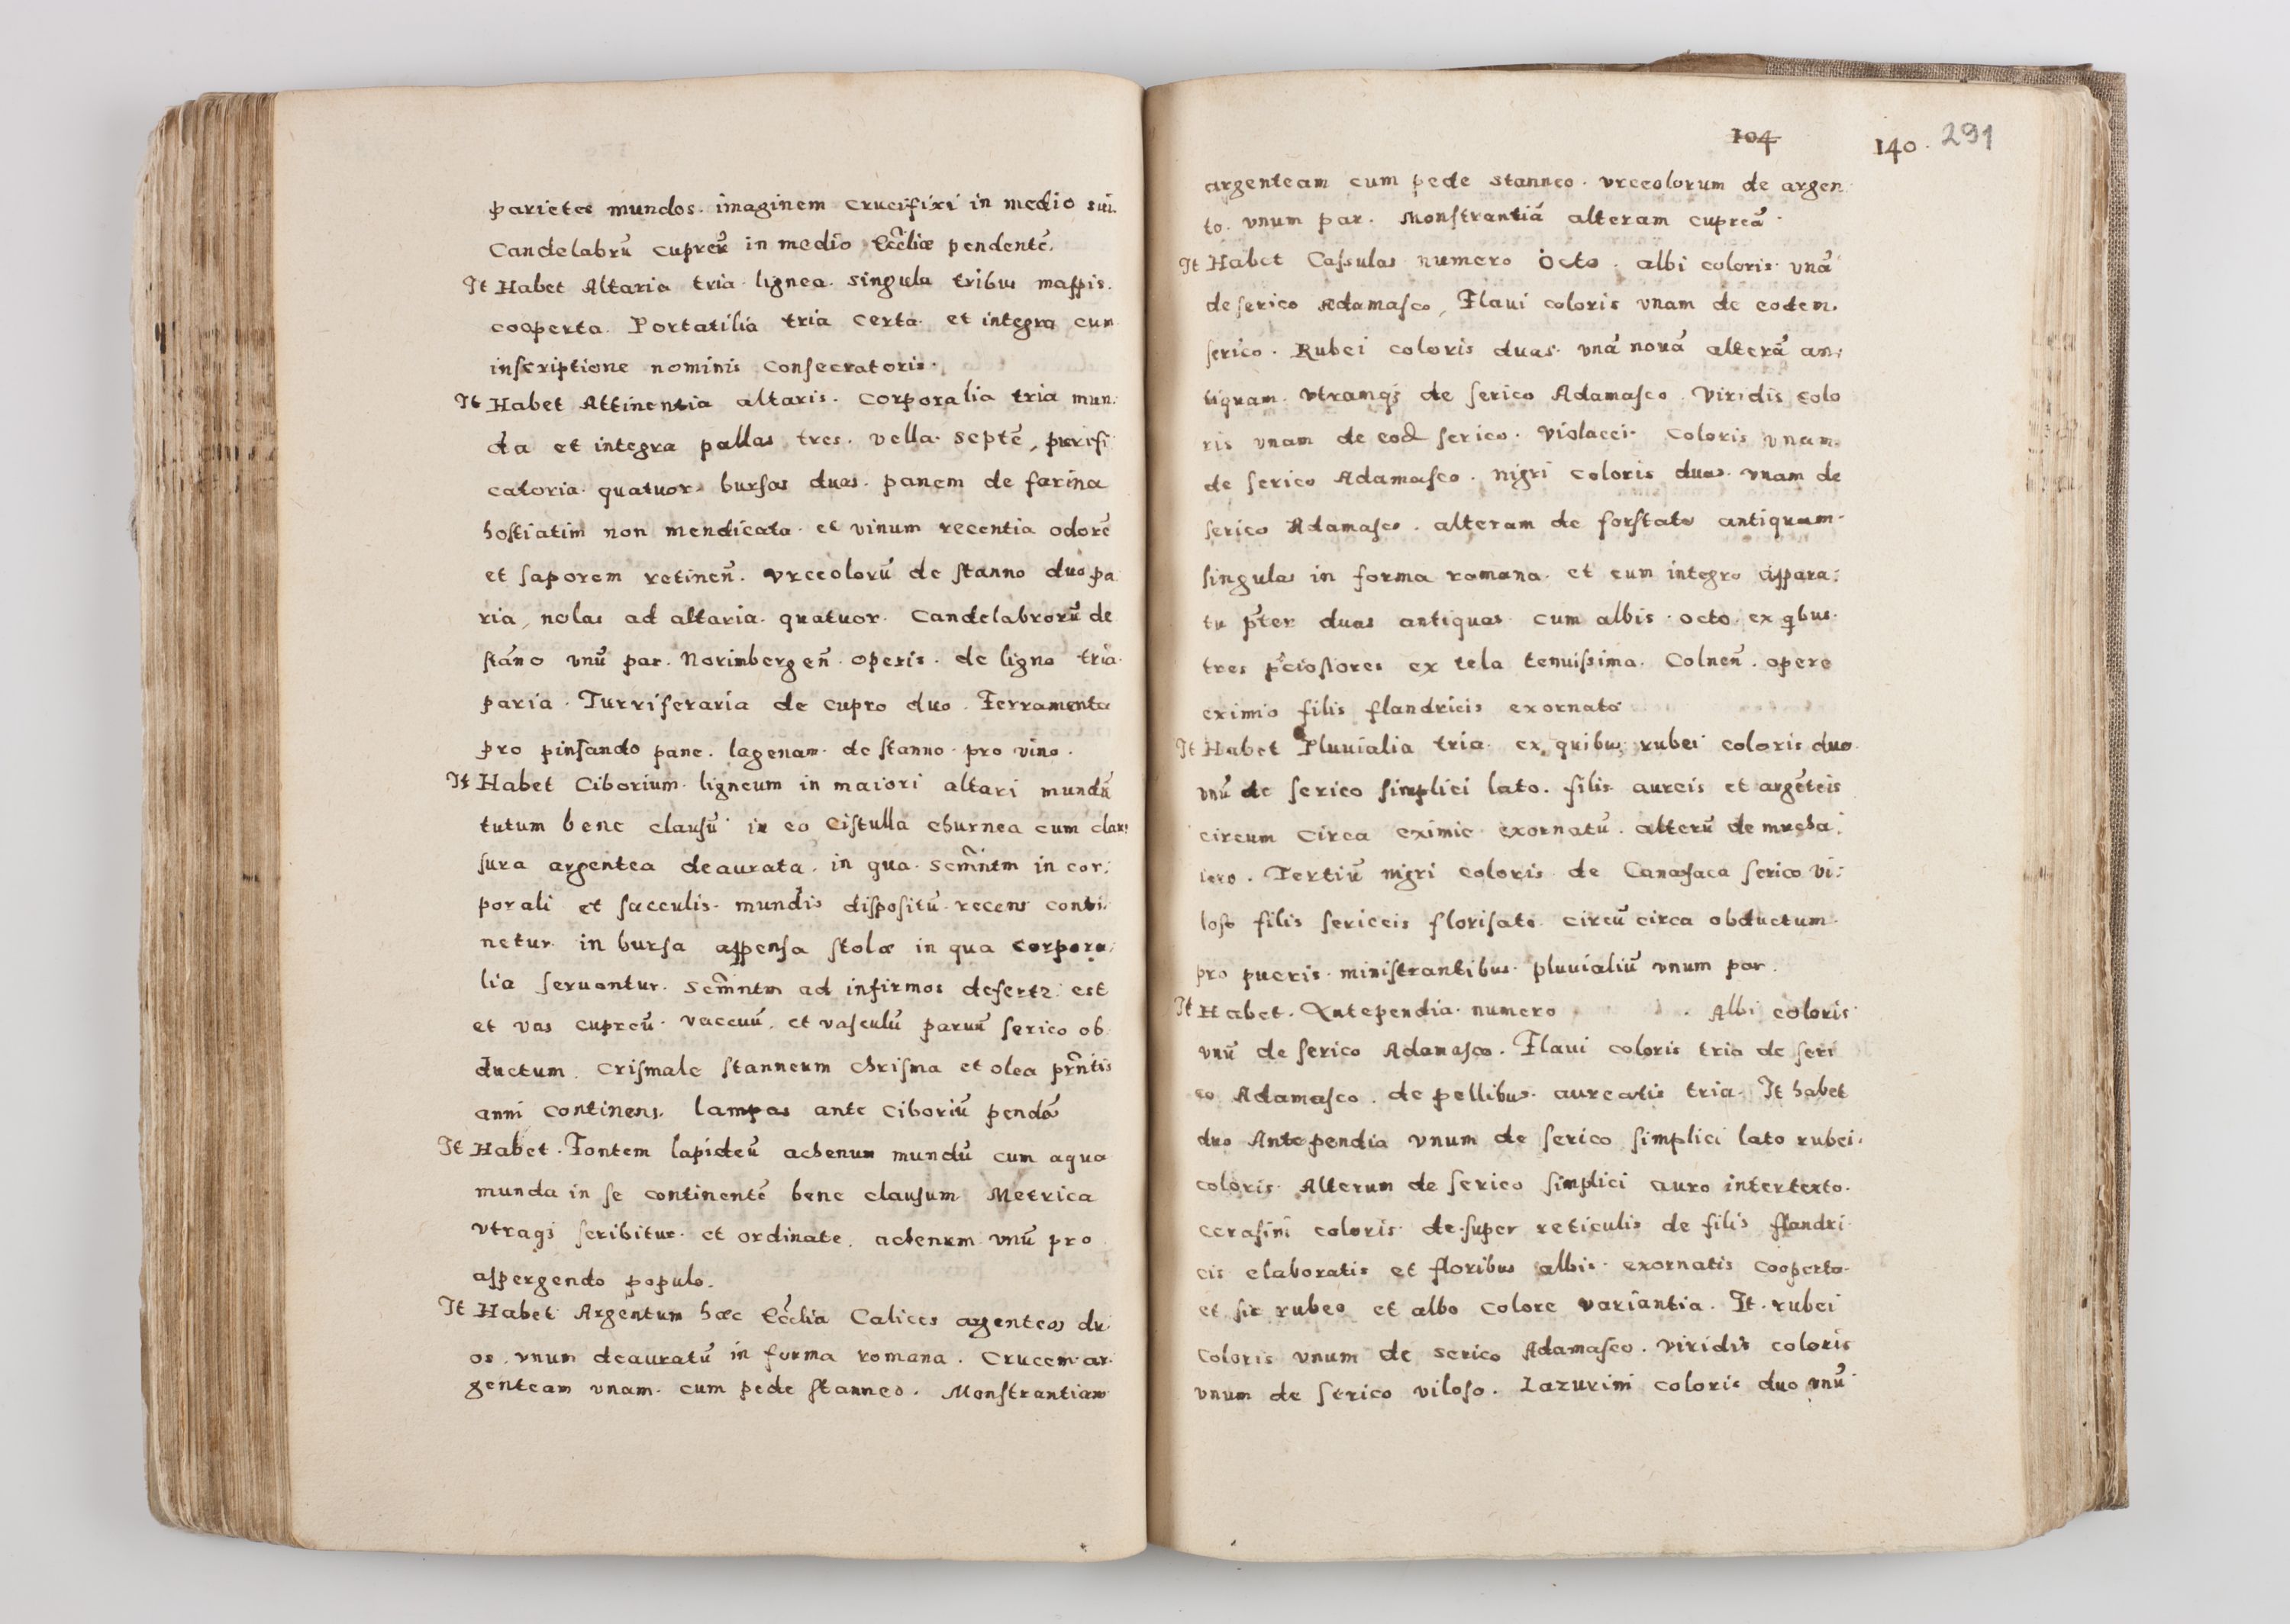 parietes mundos. imaginem Crucifixi in medio sui.
Candelabrũ cupreũ in medio Ecclĩæ pendentẽ.
It Habet Altaria tria lignea. singula tribus mappis.
cooperta. Portatilia tria certa. et integra cum
inscriptione nominis Consecratoris.
It Habet Attinentia altaris. Corporalia tria mun:
da et integra pallas tres. vella septẽ, purifi
catoria quatuor bursas duas. panem de farina
hostiatim non mendicata et vinum recentia odorẽ
et saporem retineñ. vrceolorũ de stanno duo pa
ria, nolas ad altaria quatuor. Candelabrorũ de
stãno vnũ par. Norimbergeñ operis. de ligno tria
paria. Turriferaria de cupro duo. Ferramenta
pro pinsando pane. lagenam de stanno pro vino.
It Habet Ciborium ligneum in maiori altari mundũ
tutum bene clausũ in eo Cistulla eburnea cum clau:
sura argentea deaurata. in qua Scm̃ntm in cor:
porali et sacculis mundis dispositũ recens conti:
netur in bursa appensa stolæ in qua corpora:
lia seruantur. Scm̃ntm ad infirmos defertr est
et vas cupreũ vaccuũ. et vasculũ paruũ serico ob
ductum. Crismale stanneum Chrisma et olea pr̃ntis
anni continens. lampas ante Ciboriũ pendã
It Habet. Fontem lapideũ achenum mundũ cum aqua
munda in se continentẽ bene clausum Metrica
vtraqȝ scribitur et ordinate. achenum vnũ pro
aspergendo populo.
It Habet Argentum hæc Ecclĩa Calices argenteos du
os. vnum deauratũ in forma romana. Crucem ar:
genteam vnam. cum pede stanneo. Monstrantiam
104 140. 291
argenteam cum pede stanneo. vrceolorum de argen
to. vnum par. Monstrantiã alteram cupreã.
It Habet Cassulas numero octo. albi coloris vnã
de serico Adamasco, Flaui coloris vnam de eodem.
serico. Rubei coloris duas. vnã nouã alterã an:
tiquam. vtramqȝ de serico Adamasco. Viridis colo
ris vnam de eod serico. violacei. Coloris vnam.
de serico Adamasco. nigri coloris duas. vnam de
serico Adamasco. alteram de forstato antiquam.
singulas in forma romana. et cum integro appara:
tu p̃ter duas antiquas cum albis octo. ex qibus.
tres p̃ciosiores ex tela tenuissima. Colneñ. opere
eximio filis flandricis exornata
It Habet Pluuialia tria. ex quibus rubei coloris duo.
vnũ de serico simplici lato. filis aureis et argẽteis
circum circa eximie exornatũ. alterũ de mucha:
iero. Tertiũ nigri coloris de Canafaca serico vi:
loso filis sericeis florisato circũ circa obductum.
pro pueris ministrantibus pluuialiũ vnum par.
It Habet. Antependia numero . Albi coloris
vnũ de serico Adamasco. Flaui coloris tria de seri
co Adamasco. de pellibus aureatis tria. It habet
duo Antependia vnum de serico simplici lato rubei.
coloris. Alterum de serico simplici auro intertexto.
cerasini coloris de super reticulis de filis flandri
cis elaboratis et floribus albis exornatis cooperta.
et sic rubeo et albo colore variantia. It. rubei
coloris vnum de serico Adamasco. viridis coloris
vnum de serico viloso. Lazurini coloris duo vnũ